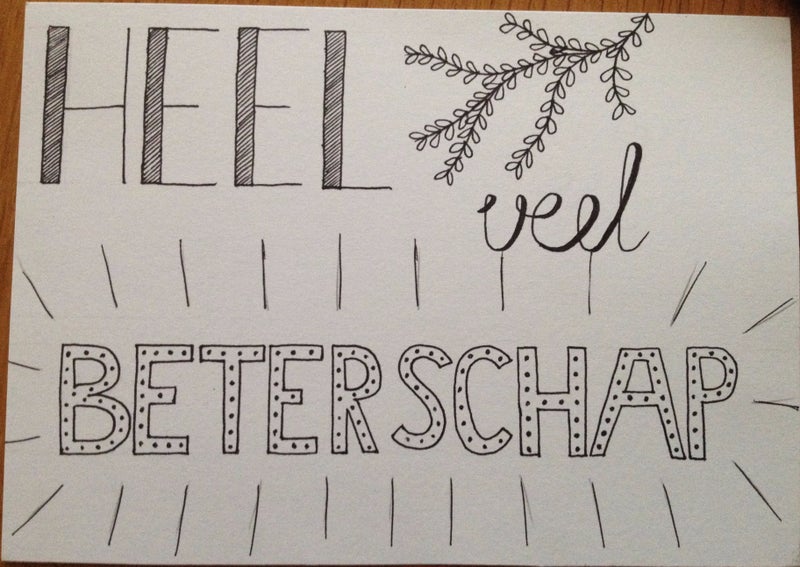 HEEL
veel
BETERSCHAP